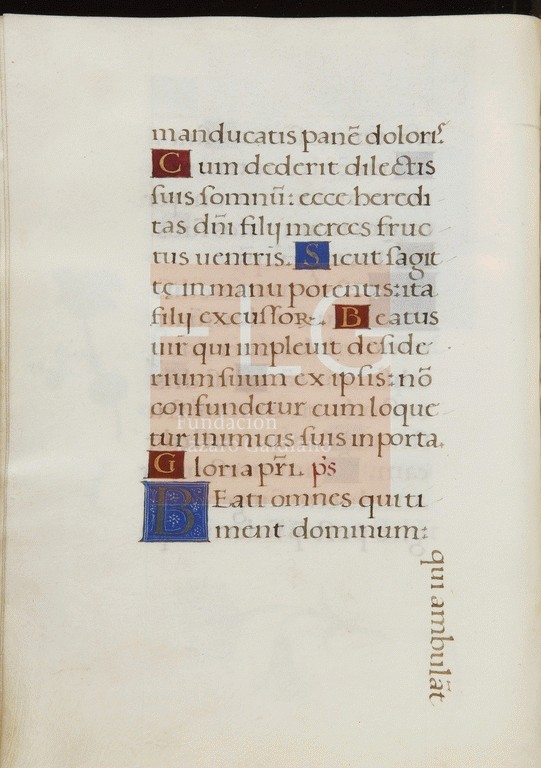 manducatis panē doloris.
Cum dederit dilectis
suis somnū: ecce heredi
tas dñi filij merces fruc
tus uentris. Sicut sagit
te in manu potentis: ita
filij excussoꝝ. Beatus
uir qui impleuit deside
rium suum ex ipsis: nō
confundetur cum loque
tur inimicis suis in porta.
Gloria pr̄i. p̄s
BEati omnes qui ti
ment dominum:
qui ambulāt
FLG
Fundación
Lázaro Galdiano